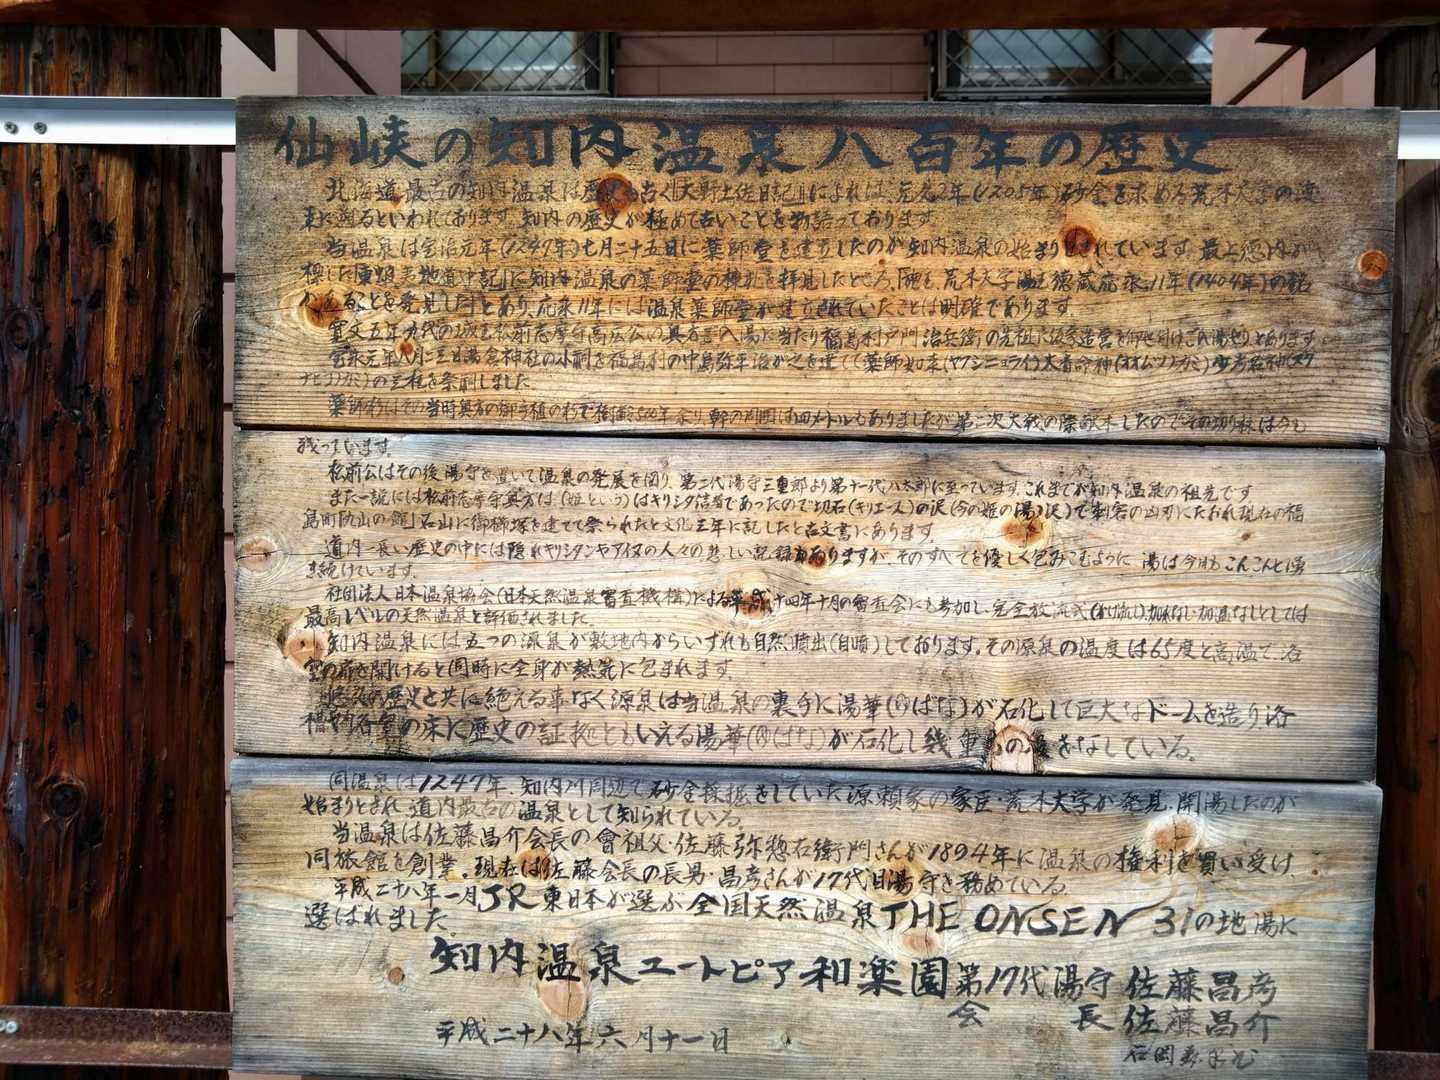 仙峡の知内温泉八百年の歴史
北海道最古の知内温泉は歴史も古く『大野土佐日記』によれば、元久2年(1205年)砂金を求める荒木大学の渡
来に遡るといわれております。知内の歴史が極めて古いことを物語っております。
当温泉は宝治元年(1247年)七月二十五日に薬師堂を建立したのが知内温泉の始まりとされています。最上徳内が
知内温泉の薬師堂の棟札を拝見したところ、荒木大学 応永11年(1404年)の銘
があることを発見した』とあり、応永11年には温泉薬師堂が建立されていたことは明確であります。
寛文五年 松前志摩守高広公の奥方 入湯に当たり福島村戸門治兵衛の先祖に仮家造営を
宝永元年八月二三日湯倉神社の小祠を福島村の中島弥平治が之を建て(薬師如来(ヤクシニョライ)大己貴命神 少彦名神(スク
ナヒコノカミ)の三柱を祭祠しました。
薬師杉はその当時奥方の御手植の杉で樹齢500年余り、幹の周囲は四メートルもありましたが第二次大戦の際献木したのでその切り株は今も
残っています。
松前公はその後湯守を置いて温泉の発展を図り、第二代湯守三重郎より第十一代八太郎に至っています。これまでが知内温泉の祖先です
また一説には松前志摩守奥方は(姫という)はキリシタン信者であったので切石(キリエース)の沢(今の姫の湯の沢)で刺客の凶刃にたおれ現在の福
島町 石山に御椀塚を建てて祭られたと文化三年に記したと古文書にあります。
道内一長い歴史の中には隠れキリシタンやアイヌの人々の悲しい記録もありますが、そのすべてを優しく包みこむように 湯は今日もこんこんと湧
き続けています。
社団法人日本温泉協会(日本天然温泉審査機構)による平成十四年十月の審査会にも参加し、完全放流式(かけ流し)加水ない加温なしとしては
最高レベルの天然温泉と評価されました。
知内温泉には五つの源泉が敷地内からいずれも自然噴出(自噴)しております。その源泉の温度は65度と高温で、石
室の扉を開けると同時に全身が熱気に包まれます。
悠久の歴史と共に絶える事なく源泉は当温泉の裏手に湯華(ゆばな)が石化して巨大なドームを造り浴
槽や石室の床に歴史の証拠ともいえる湯華(ゆばな)が石化し幾重もの層をなしている。
同温泉は1247年、知内川周辺で砂金採掘をしていた源頼家の家臣・荒木大学が発見・開湯したのが
始まりとされ、道内最古の温泉として知られている。
当温泉は佐藤昌介会長の曾祖父・佐藤弥惣右衛門さんが1894年に温泉の権利を買い受け、
同旅館を創業。現在は佐藤会長の長男・昌彦さんが17代目湯守を務めている。
平成二十八年一月JR東日本が選ぶ全国天然温泉THE ONSEN 31の地湯に
選ばれました。
知内温泉ユートピア和楽園 第17代湯守 佐藤昌彦
会長 佐藤昌介
平成二十八年六月十一日